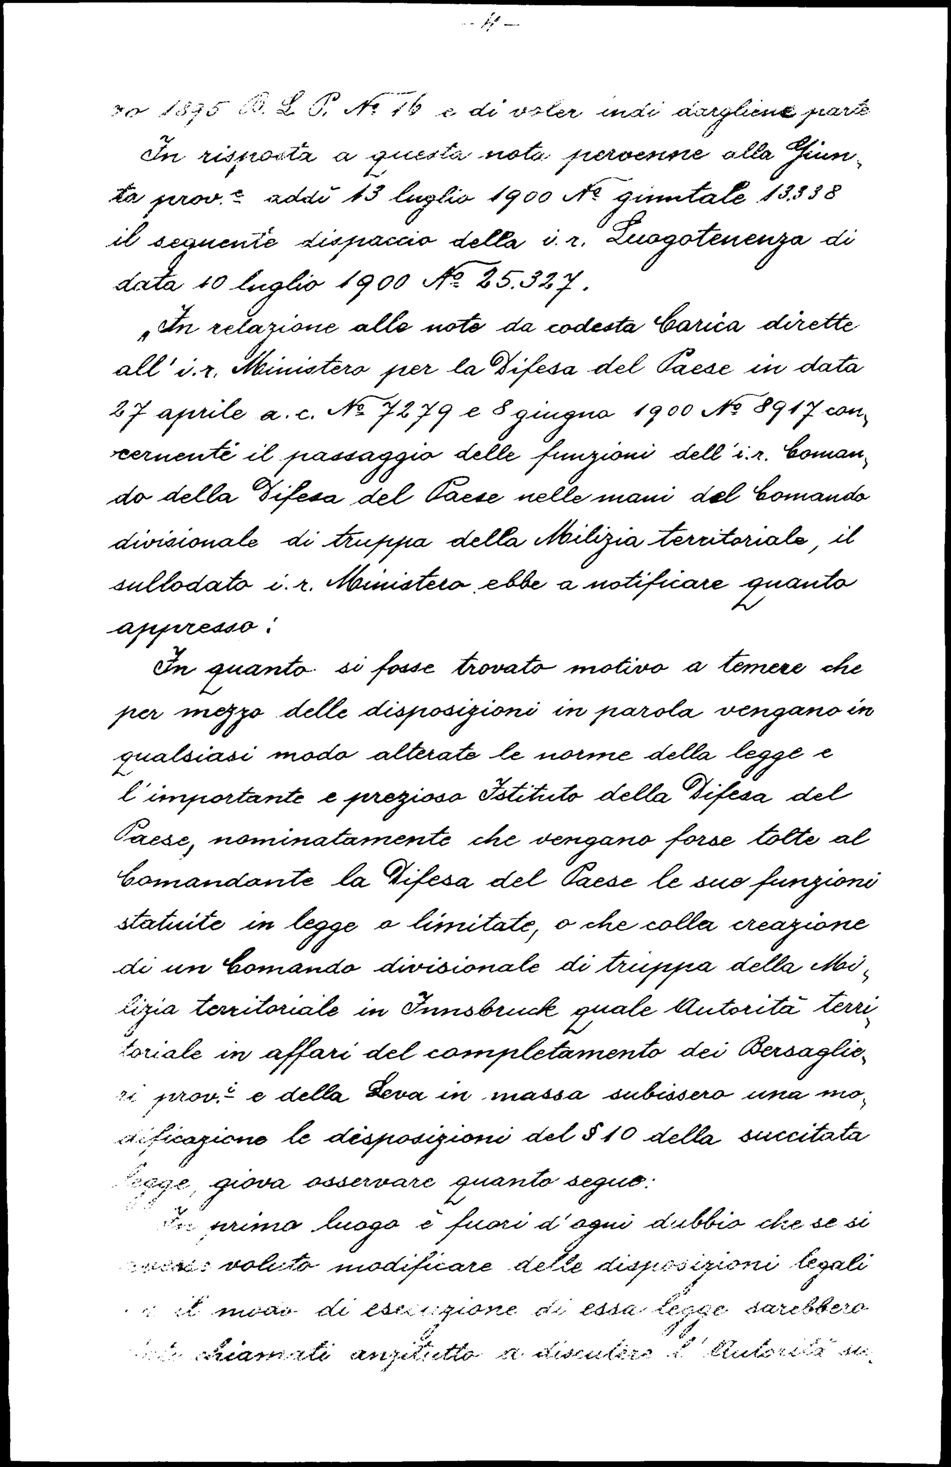 — 4 —
ro 1895 B. L. P. № 16 e di voler indi dargliene parte
In risposta a questa nota pervenne alla Giun„
ta prov.e addì 13 luglio 1900 № giuntale 13.338
il seguente dispaccio della i. r. Luogotenenza di
data 10 luglio 1900 № 25.327.
„In relazione alle note da codesta Carica dirette
all' i. r. Ministero per la Difesa del Paese in data
27 aprile a. c. № 7279 e 8 giugno 1900 № 8917 con„
cernenti il passaggio delle funzioni dell' i. r. Coman„
do della Difesa del Paese nelle mani del Comando
divisionale di truppa della Milizia territoriale, il
sullodato i. r. Ministero ebbe a notificare quanto
appresso:
In quanto si fosse trovato motivo a temere che
per mezzo delle disposizioni in parola vengano in
qualsiasi modo alterate le norme della legge e
l'importante e prezioso Istituto della Difesa del
Paese, nominatamente che vengano forse tolte al
Comandante la Difesa del Paese le sue funzioni
statuite in legge o limitate, o che colla creazione
di un Comando divisionale di truppa della Mi„
lizia territoriale in Innsbruck quale Autorità terri„
toriale in affari del completamento dei Bersaglie„
ri prov.i e della Leva in massa subissero una mo„
dificazione le disposizioni del § 10 della succitata
legge, giova osservare quanto segue:
In primo luogo è fuori d'ogni dubbio che se si
avesse voluto modificare delle disposizioni legali
il modo di esecuzione di essa legge sarebbero
chiamati anzitutto a discutere l'Autorità su„